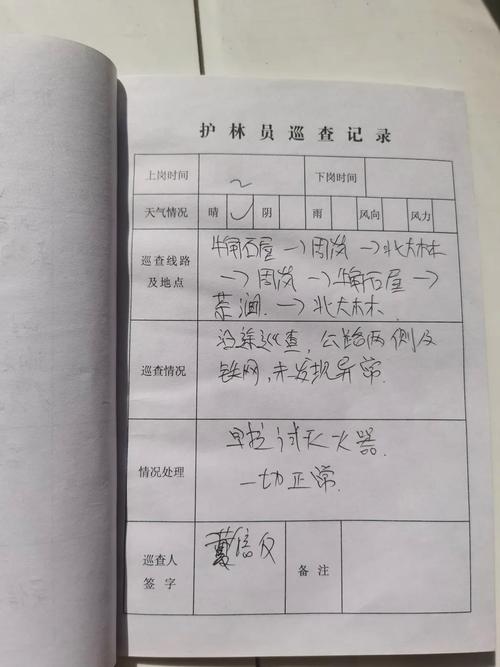 护林员巡查记录
上岗时间 下岗时间
天气情况 晴 阴 雨 风向 风力
巡查线路及地点
牛角石屋→周岗→北大林
→周岗→牛角石屋→
茶涧→北大林
巡查情况
沿途巡查,公路两侧及
铁网,未发现异常.
情况处理
灭火器.
一切正常.
巡查人
签字
备注